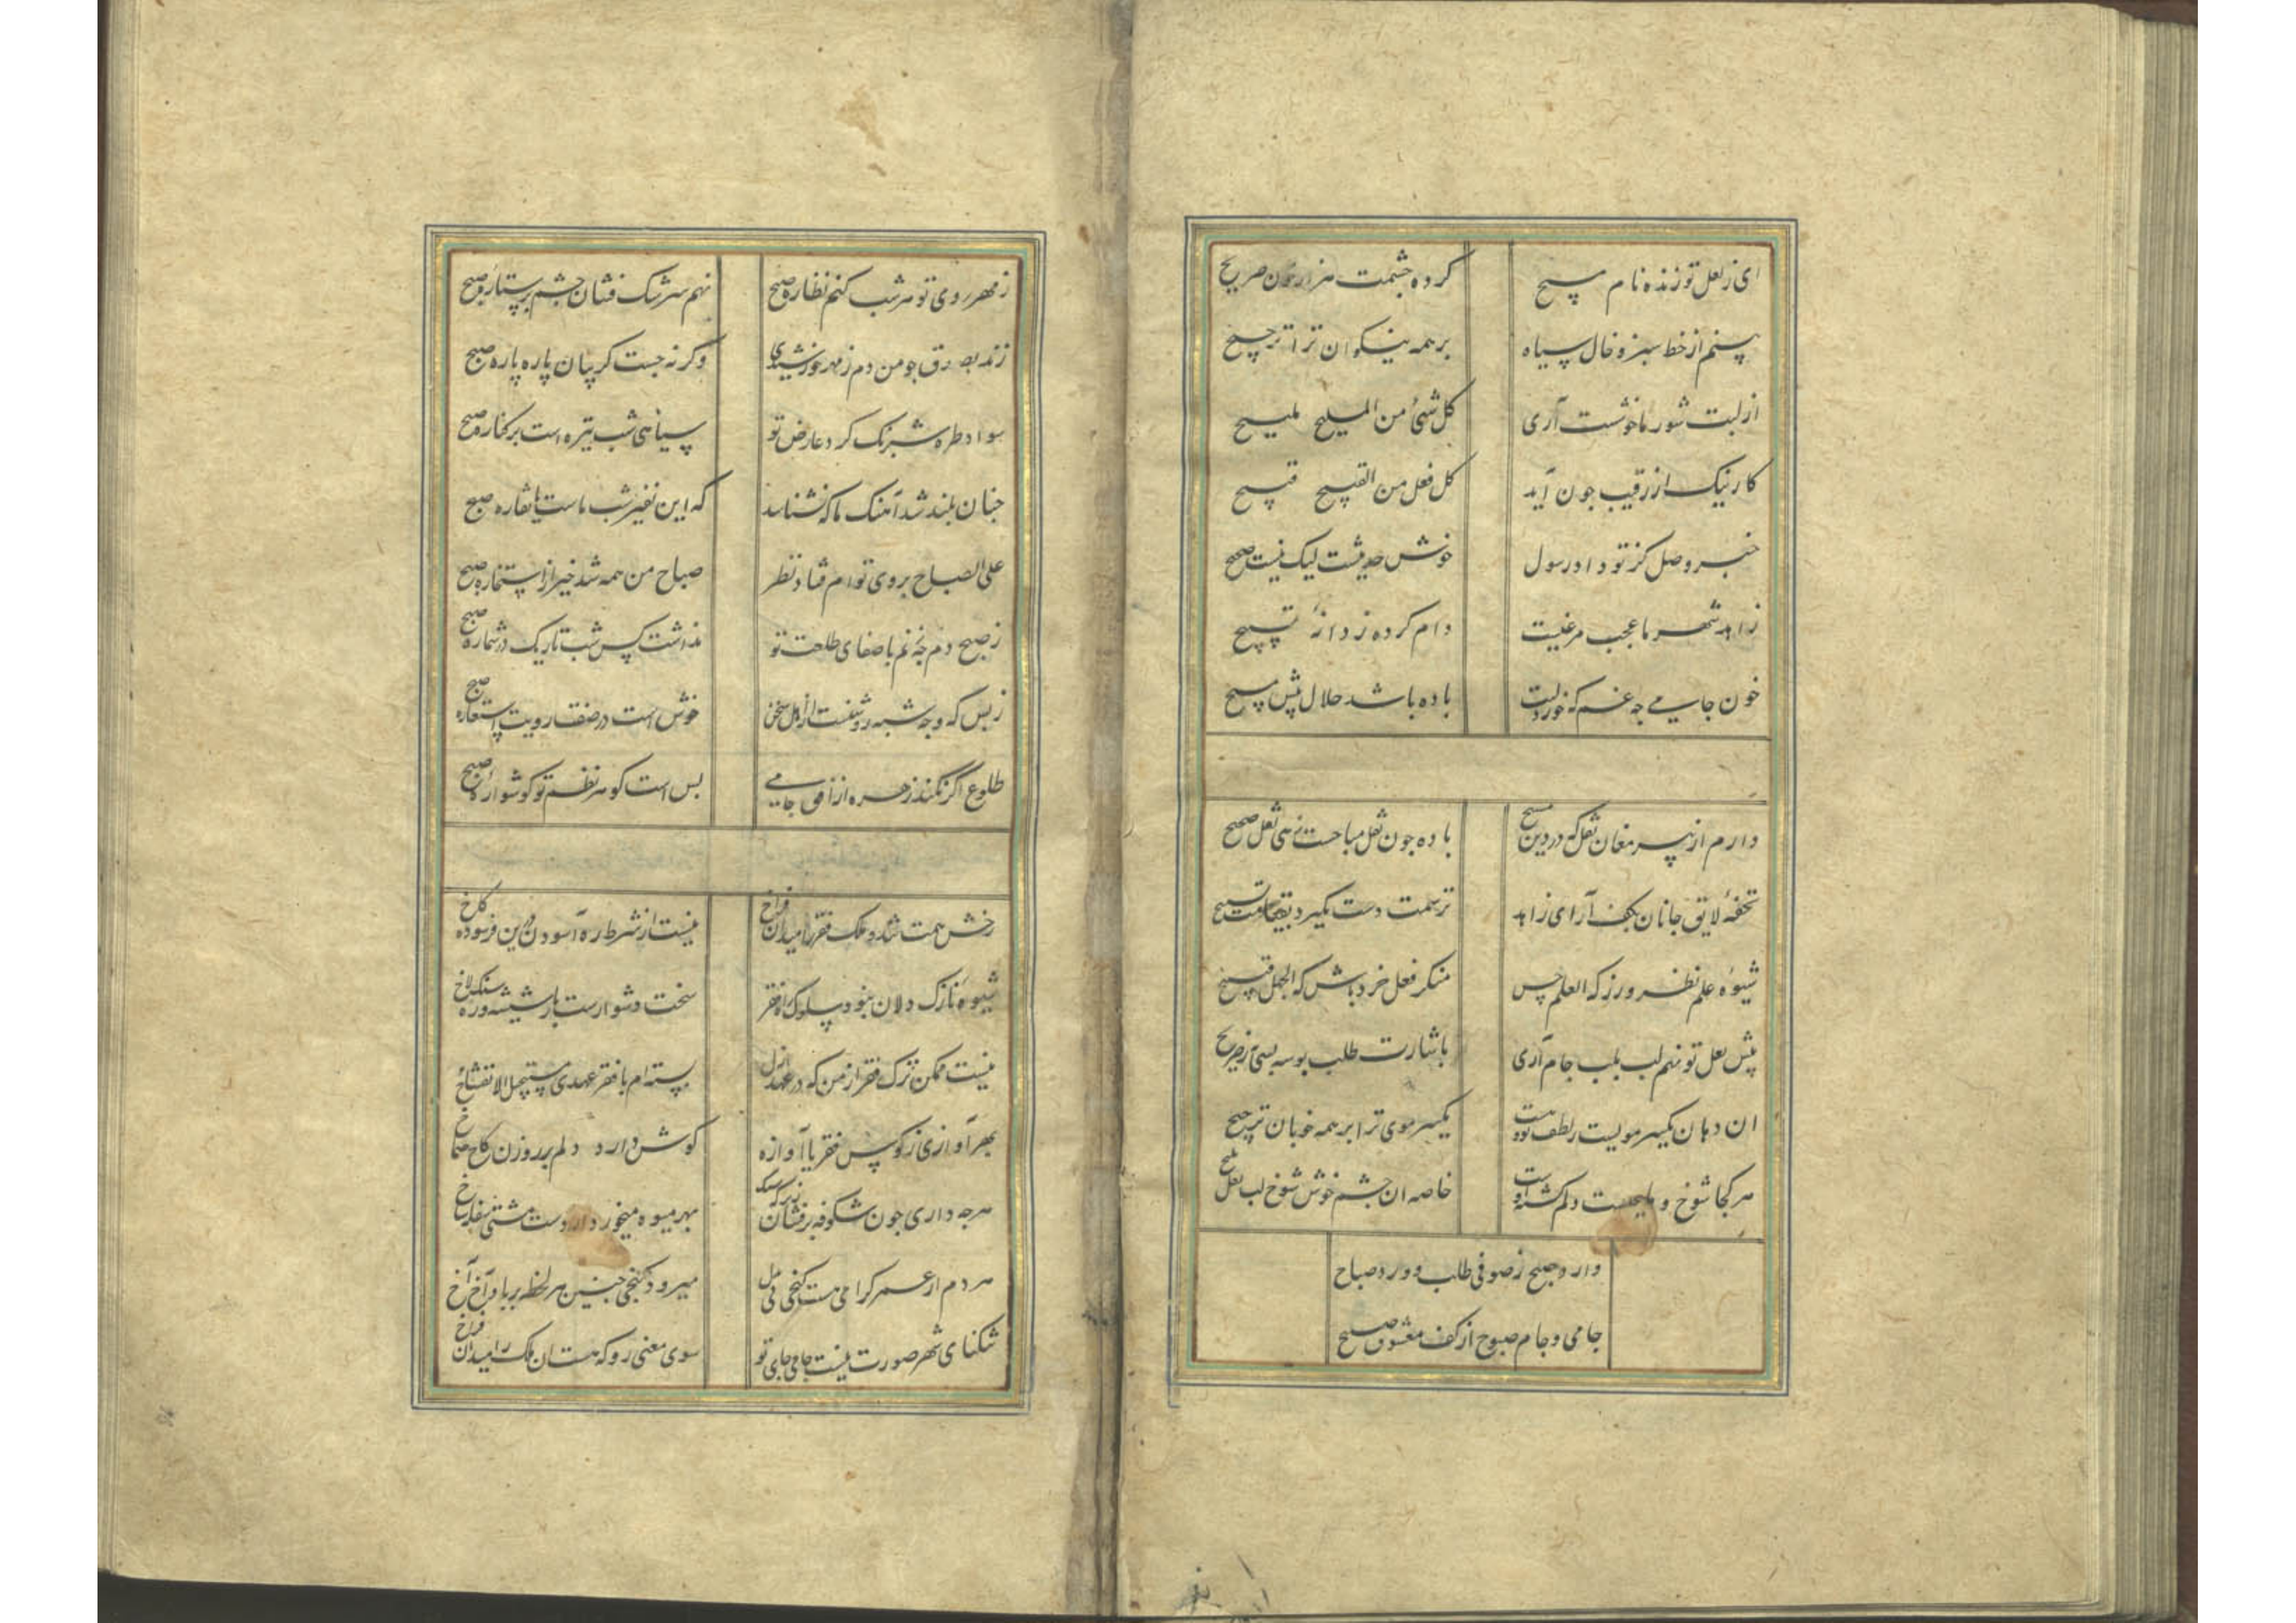 ای ز لعل تو زنده نام مسیح کرده چشمت هزار خون صریح
بینم از خط سبز و خال سیاه بر همه نیکوان ترا ترجیح
از لبت شور ما خوشست آری کل شئ من الملیح ملیح
کار نیک از رقیب چون آید کل فعل من القبیح قبیح
خبر وصل کز تو داد رسول خوش حدیثست لیک نیست صحیح
زاهد شهر ما عجب مرغیست دام کرده ز دانهٔ تسبیح
خون جامی چه غم که خورد لبت باده باشد حلال پیش مسیح
دارم از پیر مغان نقل که در دین مسیح باده چون نقل مباحست زهی نقل صحیح
تحفهٔ لایق جانان بکف آر ای زاهد ترسمت دست نگیرد بقیامت تسبیح
شیوهٔ علم نظر ورز که العلم حسن منکر فعل خرد باش که الجهل قبیح
پیش لعل تو نهم لب بلب جام آری باشارت طلب بوسه بسی به ز صریح
ان دهان یکسر مویست ز لطف تو و هست یکسر موی ترا بر همه خوبان ترجیح
هر کجا شوخ و ملیحیست دلم کشتهٔ اوست خاصه ان چشم خوش شوخ لب لعل ملیح
وارد صبح ز صوفی طلب و ورد صباح
جامی و جام صبوح از کف معشوق صبیح
ز مهر روی تو هر شب کنم نظارهٔ صبح نهم سرشک فشان چشم بر ستارهٔ صبح
زند بصدق چو من دم ز مهر خورشیدی وگرنه چیست گریبان پاره پارهٔ صبح
سواد طره شبرنگ گرد عارض تو سیاهی شب تیره است بر کنارهٔ صبح
چنان بلند شد آهنگ ما که نشناسد که این نفیر شب ماست یا نقارهٔ صبح
علی الصباح بروی توام فتاد نظر صباح من همه شد خیر از استخارهٔ صبح
ز صبح دم چه زنم با صفای طلعت تو نداشت کس شب تاریک در شمارهٔ صبح
ز بس که وجه شبه روشنست از اهل سخن خوش است در صفت رویت استعارهٔ صبح
طلوع اگر نکند زهره از افق جامی بس است گوهر نظم تو گوشوارهٔ صبح
رخش همت شد و ملک فقر را میدان فراخ نیست از شرط ره آسودن درین فرسوده کاخ
شیوهٔ نازک دلان نبود سلوک راه فقر سخت دشوارست بار شیشه و ره سنگلاخ
نیست ممکن ترک فقر از من که در عهد ازل بسته ام با فقر عهدی مستحیل الانفساخ
بهر آوازی ز کوس فقر یا آوازه گوش دارد دلم بر روزن کاخ صماخ
هرچه داری چون شکوفه برفشان زیرا که سنگ بهر میوه میخورد از دست مشتی سفله شاخ
هر دم از عمر گرامی هست گنجی بی بدل میرود گنجی چنین هر لحظه بر باد آخ آخ
تنگنای شهر صورت نیست جامی جای تو سوی معنی رو که هست ان ملک را میدان فراخ